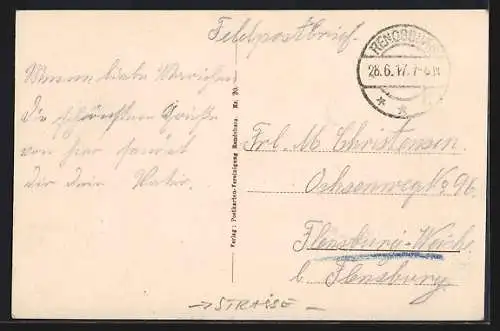 Feldpostbrief.
RENDSBURG
26.6.17. 7-8N
Meine liebe
Die schönsten Grüße
von hier sendet
dir dein Vater.
Verlag: Postkarten-Vereinigung Rendsburg. Nr. 20.
Frl. M Christensen.
Ochsenweg No 96.
Flensburg-Weiche
b. Flensburg.
→ STRASSE –